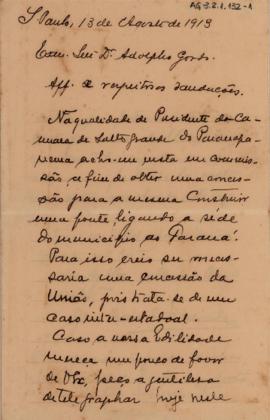 AG 3.2.1.132-1
S. Paulo, 13 de Agosto de 1913
Exm. Snr. Dr. Adolpho Gordo.
Aff. e respeitosas saudações.
Na qualidade de Presidente da Ca-
mara de Salto Grande do Paranapa-
nema acho-me nesta em commis-
são, a fim de obter uma conces-
são para a mesma construir
uma ponte ligando a séde
do municipio ao Paraná.
Para isso creio ser neces-
saria uma concessão da
União, pois trata-se de um
caso inter-estadoal.
Caso a nossa Edilidade
mereça um pouco de favor
de V. Ex., peço a gentileza
de telegraphar hoje